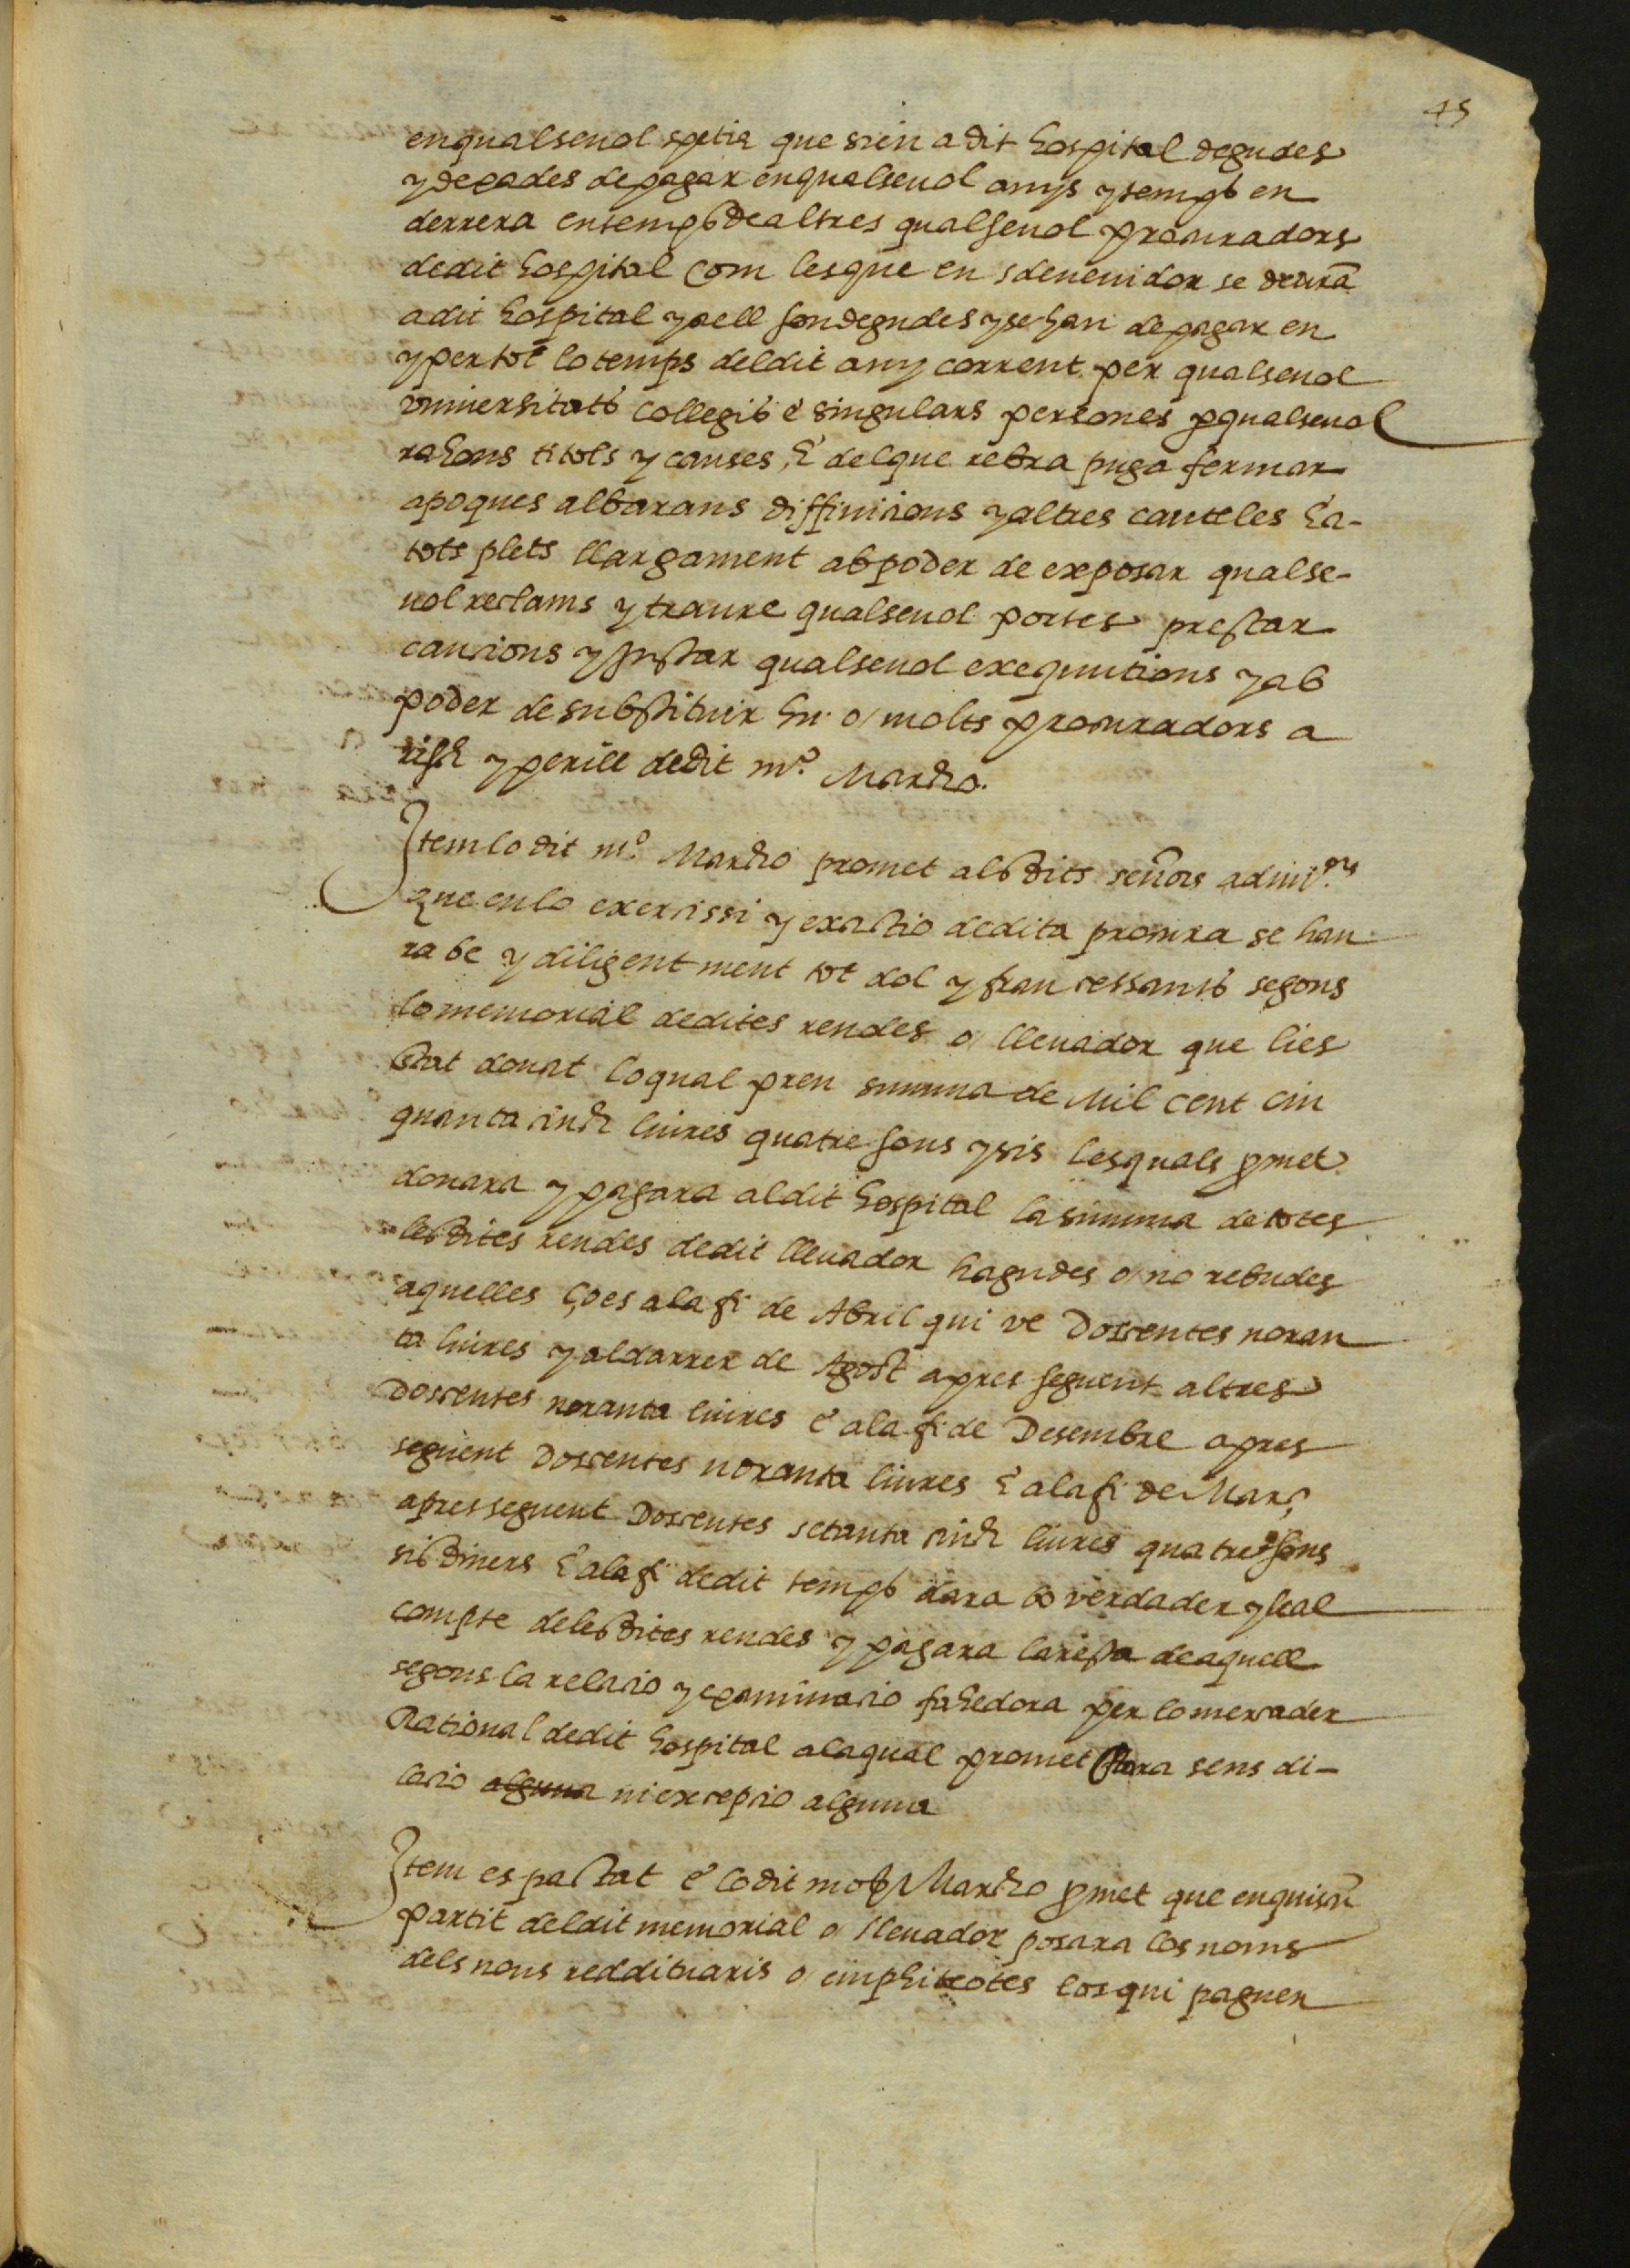 45
en qualsevol spetia que sien a dit hospital degudes
y degades de pagar en qualsevol anys y temps en
derrera en temps de altres qualsevol procuradors
de dit hospital com les que en sdevenidor se deura
a dit hospital y a ell son degudes y se han de pagar en
y per tot lo temps del dit any corrent per qualsevol
universitats collegis e singulars persones p qualsevol
rahons titols y causes, E del que rebra puga fermar
apoques albarans diffinicions y altres cauteles Ea-
tots plets llargament ab poder de exposar qualse-
vol reclams y traure qualsevol portes prestar
caucions y justar qualsevol exequutions y ab
poder de substituir hu o molts procuradors a
risch y perill de dit m.º Marcho.
Item lo dit m.º Marcho promet als dits señors admi.ors
que en lo exercissi y exactio de dita procura se hau
ra be y diligentment tot dol y frau cessants segons
lo memorial de dites rendes o llevador que li es
stat donat lo qual pren summa de Mil cent cin
quanta sinch liures quatre sous y sis les quals pmet
donara y pagara al dit hospital la summa de totes
les dites rendes de dit llevador hagudes o no rebudes
aquelles ço es a la fi de Abril qui ve Doscentes noran
ta liures y al darrer de Agost apres seguent altres
Doscentes noranta liures e a la fi de Desembre apres
seguent Doscentes noranta liures E a la fi de Març
apres seguent Doscentes setanta sinch liures quatre sous
sis diners E a la fi de dit temps dara bo verdader y leal
compte de les dites rendes y pagara la resta de aquell
segons la relacio y examinacio fahedora per lo mercader
Rational de dit hospital a la qual promet stara sens di-
lacio alguna ni excepcio alguna
Item es pactat e lo dit mos Marcho pmet que en quiscu
partit del dit memorial o llevador posara los noms
dels nous reddituaris o emphiteotes los qui paguen